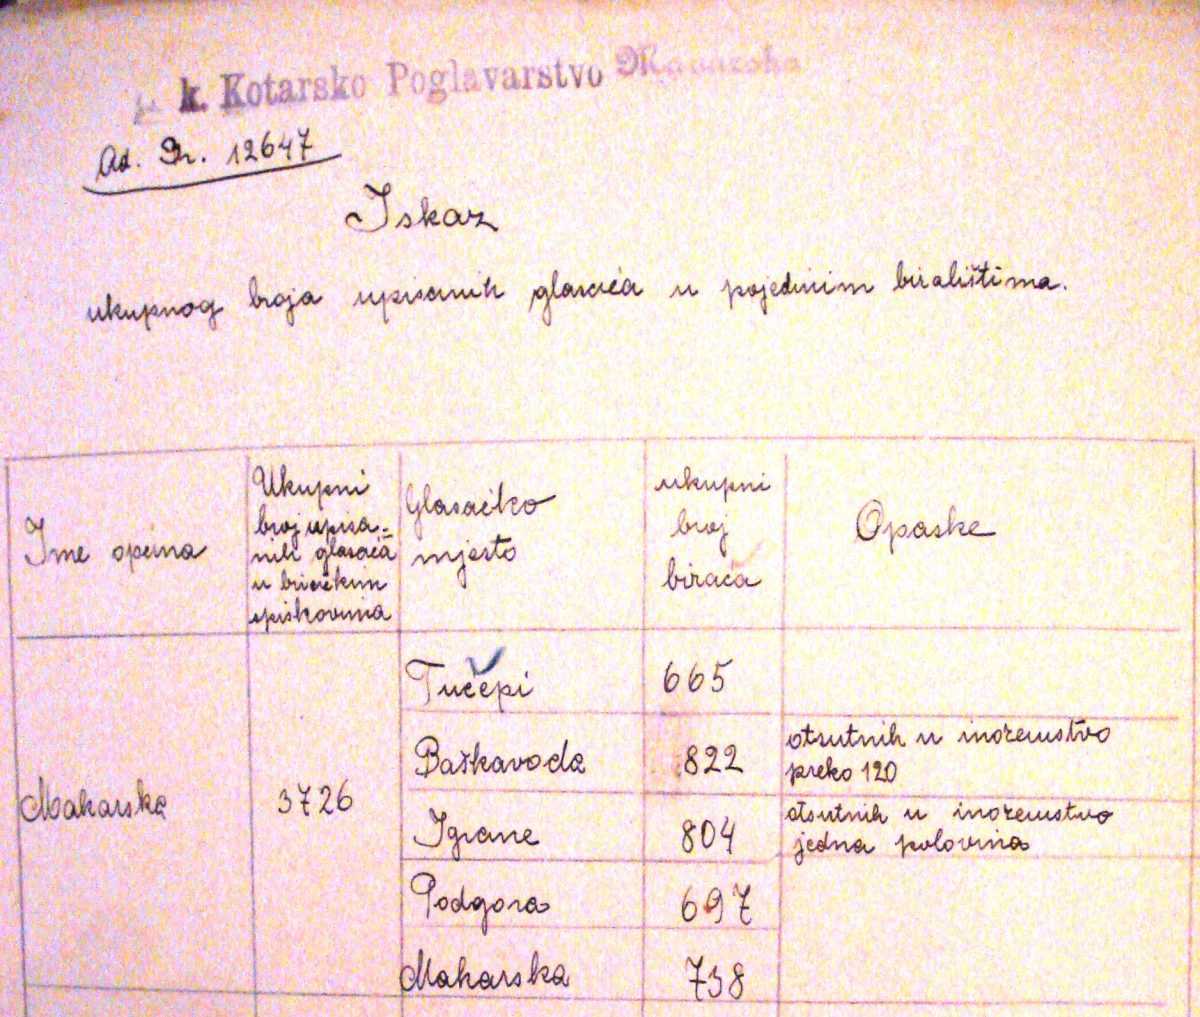 k. Kotarsko Poglavarstvo Makarska
Ad. Br. 12647
Iskaz
ukupnog broja upisanih glasača u pojedinim biralištima.
Ime općina
Ukupni
broj upisa=
nih glasača
u biračkim
spiskovima
Glasačko
mjesto
ukupni
broj
birača
Opaske
Makarska
3726
Tučepi
665
Baškavoda
822
otsutnih u inozemstvo
preko 120
Igrane
804
otsutnih u inozemstvo
jedna polovina
Podgora
697
Makarska
738